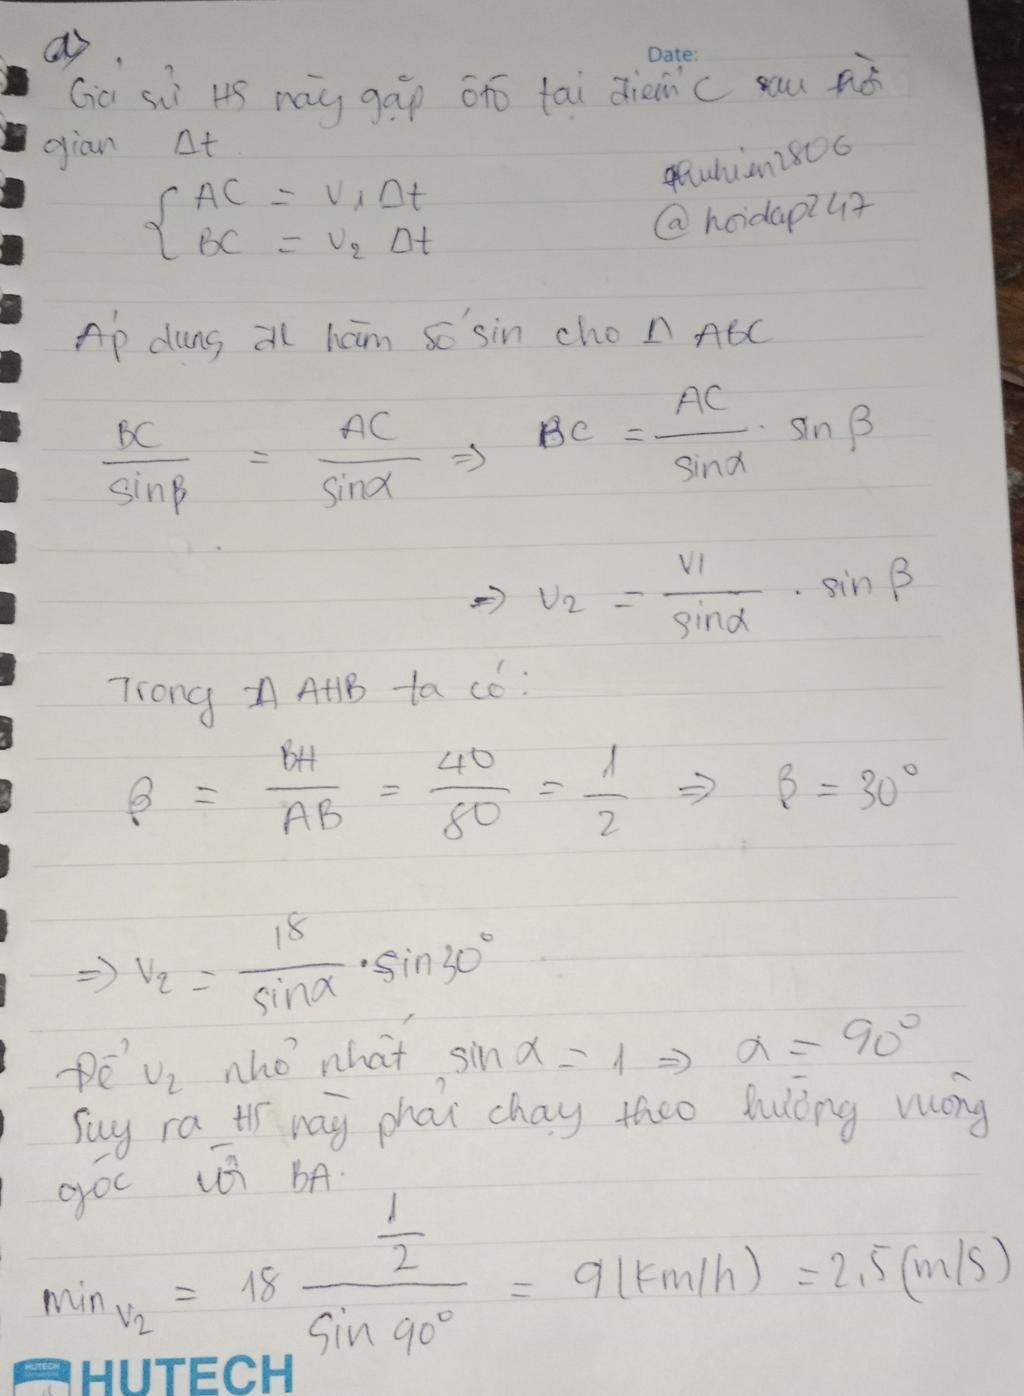 a>
Date:
Giả sử HS này gặp ôtô tại điểm C sau
gian Δt.
{ AC = V1 Δt
{ BC = V2 Δt
@hoidap247
Áp dụng đl hàm số sin cho Δ ABC
BC/sinβ = AC/sinα => BC = AC/sinα . sin β
=> V2 = V1/sinα . sin β
Trong Δ AHB ta có:
β = BH/AB = 40/80 = 1/2 => β = 30°
=> V2 = 18/sinα . sin30°
Để V2 nhỏ nhất sin α = 1 => α = 90°
Suy ra HS này phải chạy theo hướng vuông
góc với BA.
min V2 = 18 (1/2)/(sin 90°) = 9 (km/h) = 2,5 (m/s)
HUTECH
HUTECH